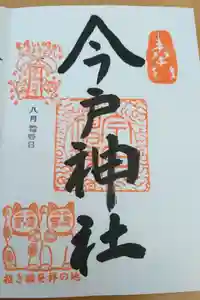 今戸神社
八月 日
招き猫発祥の地